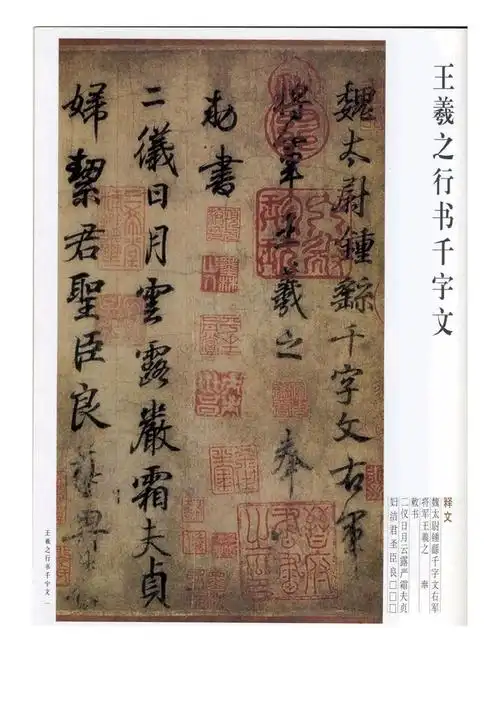 王羲之行书千字文
魏太尉鍾繇千字文右軍
将軍王羲之 奉
勑書
二儀日月雲露嚴霜夫貞
婦絜君聖臣良
释文
魏太尉鍾繇千字文右军
将军王羲之 奉
敕书
二仪日月云露严霜夫贞
妇洁君圣臣良□□□
王羲之行书千字文 一